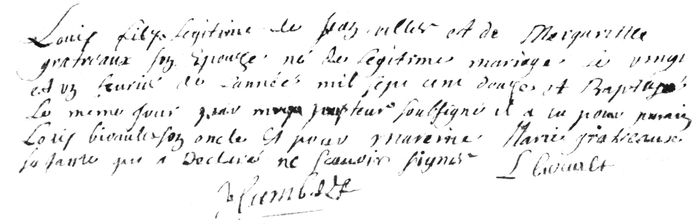 Louis fils legitime de Jean villes et de Margueritte
gratreaux son Epouse né de legitime mariage le vingt
et un feurie de Lannée mil sept cent douze et Baptise
le meme jour par moy pasteur soubsigné il a eu pour parain
Louis son oncle Et pour mareine Marie gratreaux
sa tante qui a Declaré ne scauoir signer L